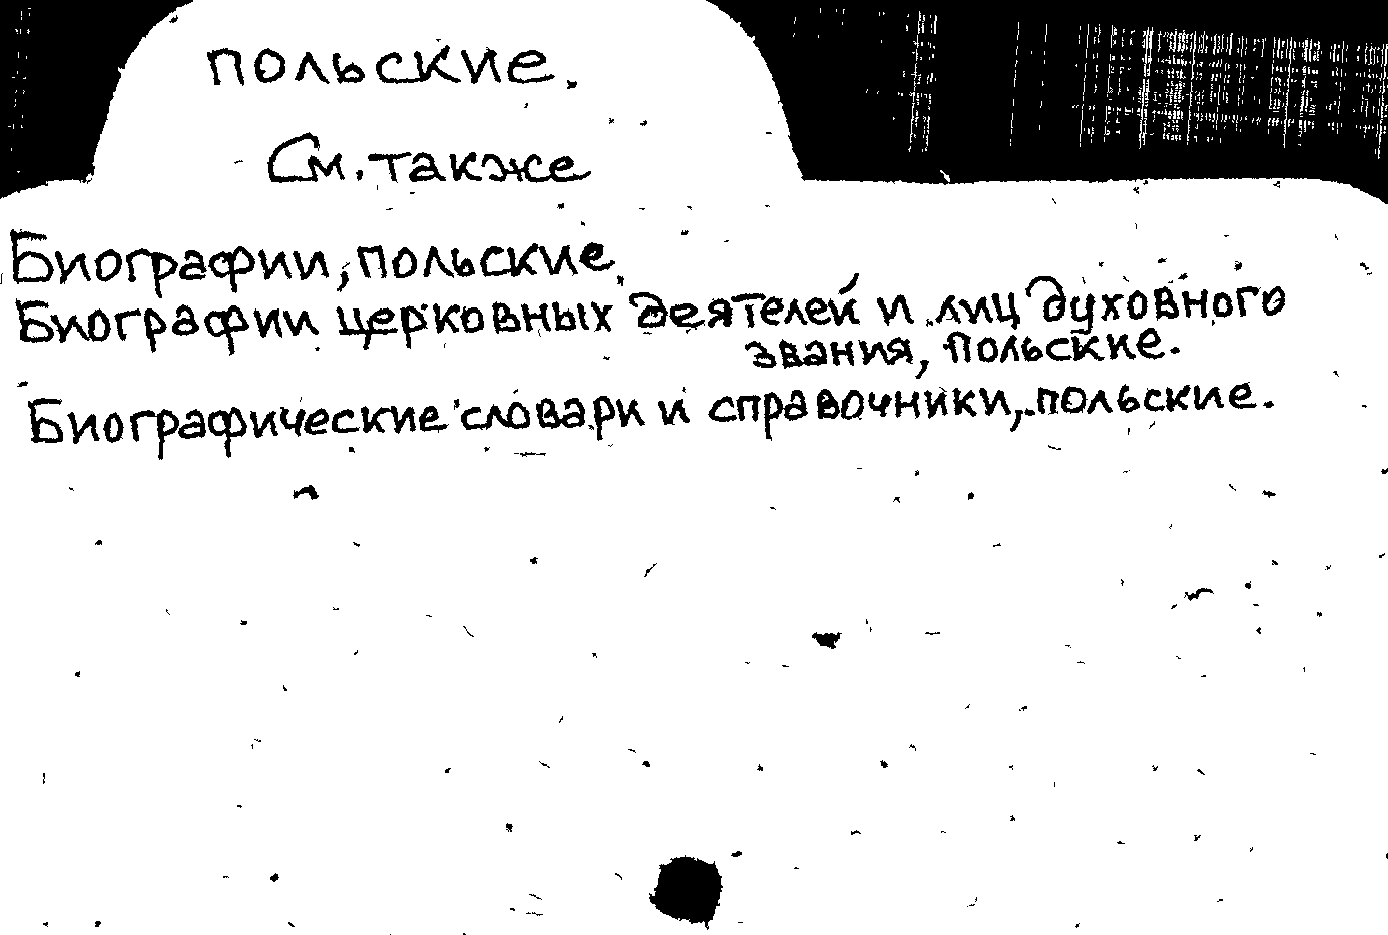 польские.
См. также
Биографии, польские.
Биографии церковных деятелей и лиц духовного
звания, польские.
Биографические словари и справочники, польские.